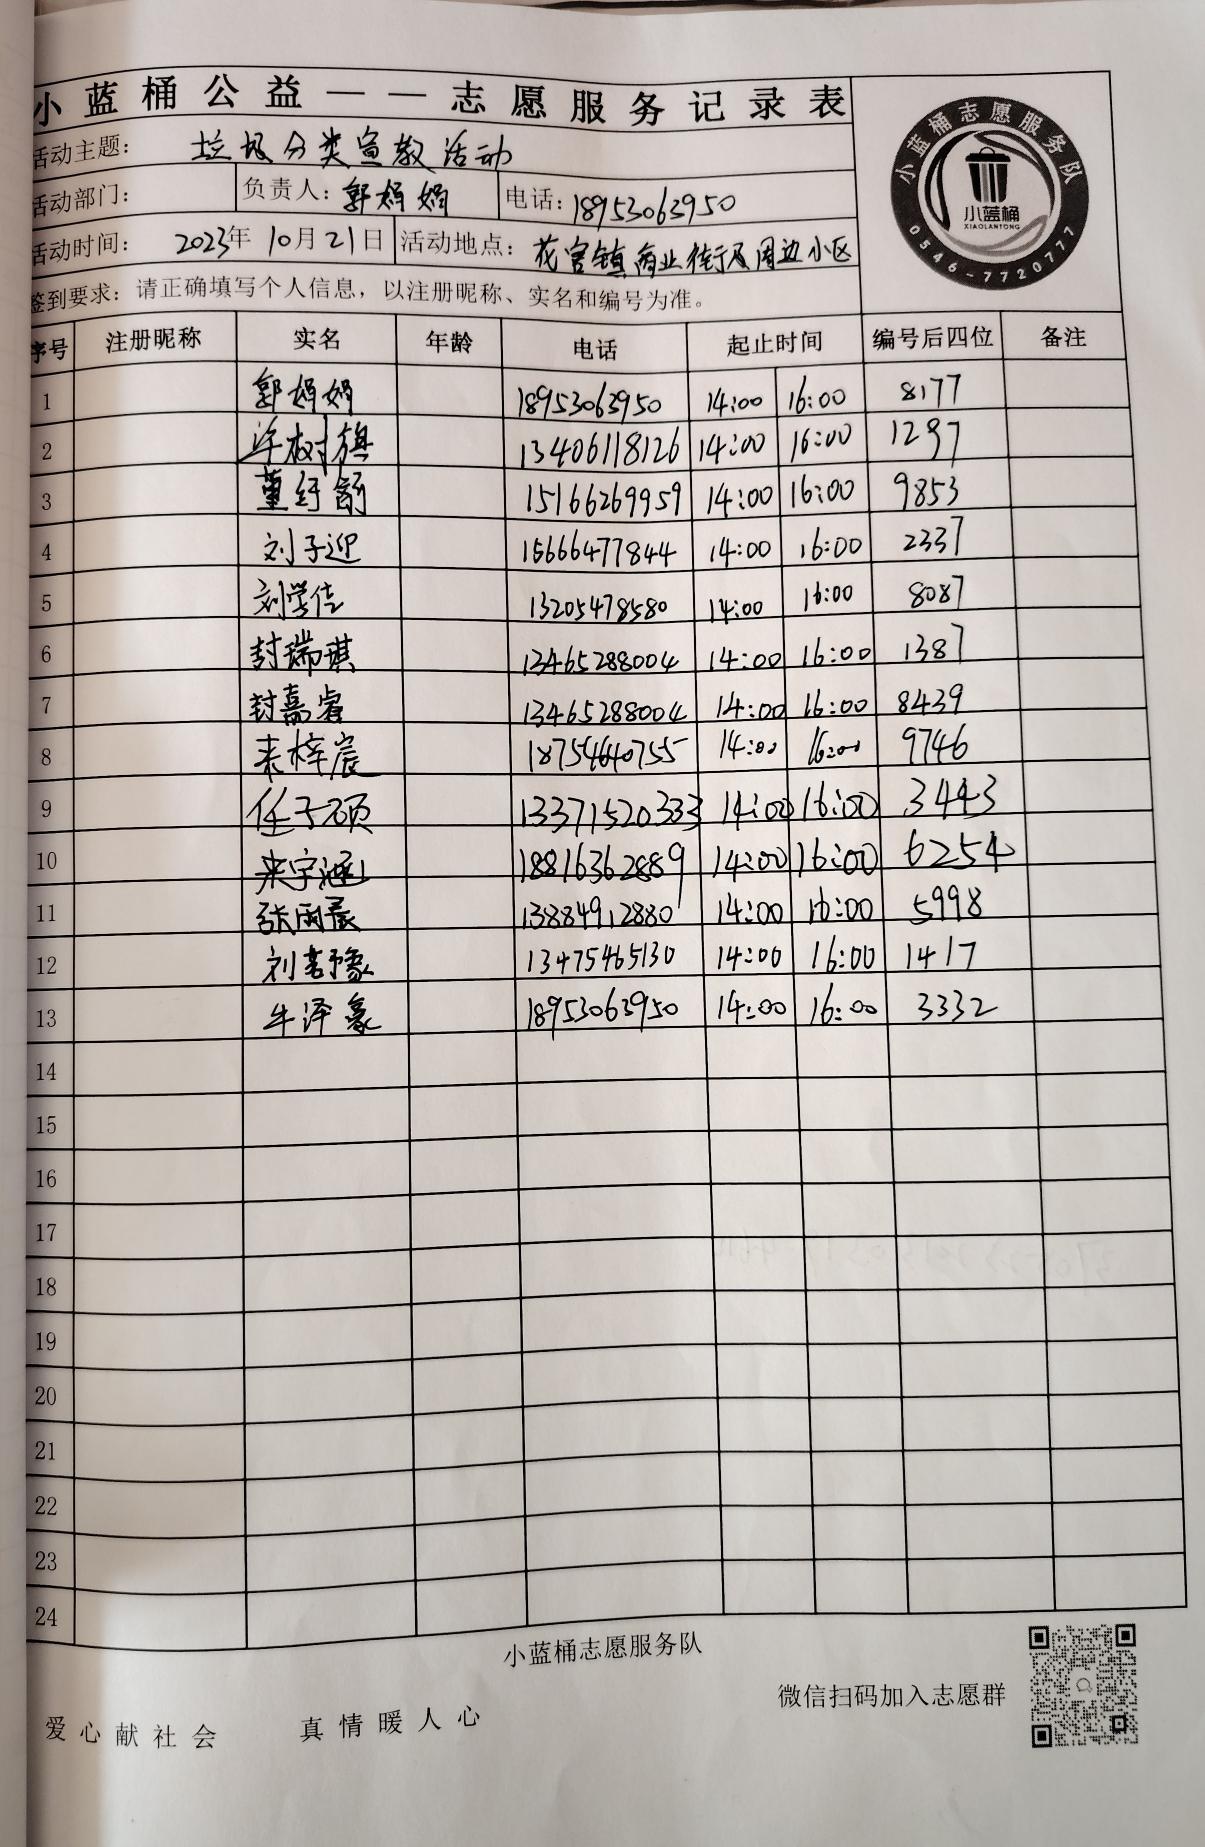 小蓝桶公益——志愿服务记录表
小蓝桶志愿服务队
小蓝桶
XIAOLANTONG
0546-7720777
活动主题： 垃圾分类宣教活动
活动部门： 负责人：郭娟娟 电话：18953063950
活动时间： 2023年 10月21日 活动地点：花官镇商业街及周边小区
签到要求：请正确填写个人信息，以注册昵称、实名和编号为准。
序号 注册昵称 实名 年龄 电话 起止时间 编号后四位 备注
1 郭娟娟 18953063950 14:00 16:00 8177
2 许树旗 13406118126 14:00 16:00 1297
3 董纾 15166269959 14:00 16:00 9853
4 刘子迎 15666477844 14:00 16:00 2337
5 刘学佳 13205478580 14:00 16:00 8087
6 封瑞琪 13465288004 14:00 16:00 1387
7 封嘉睿 13465288004 14:00 16:00 8439
8 来梓宸 18754640755 14:00 16:00 9746
9 任子硕 13371520333 14:00 16:00 3443
10 来宇涵 18816362889 14:00 16:00 6254
11 张雨晨 13884912880 14:00 16:00 5998
12 刘若豫 13475465130 14:00 16:00 1417
13 牛泽豪 18953063950 14:00 16:00 3332
14
15
16
17
18
19
20
21
22
23
24
小蓝桶志愿服务队
微信扫码加入志愿群
爱心献社会 真情暖人心